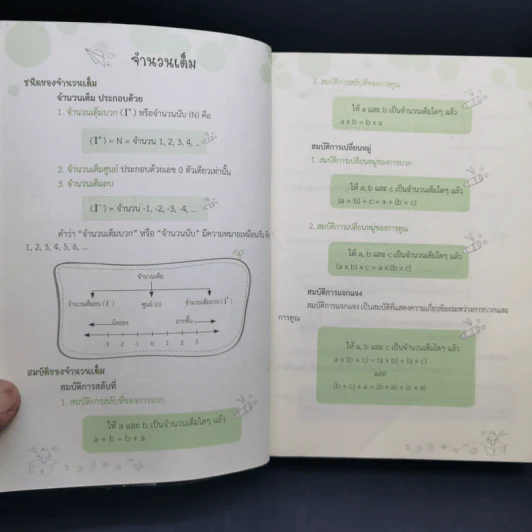 จำนวนเต็ม
ชนิดของจำนวนเต็ม
จำนวนเต็ม ประกอบด้วย
1. จำนวนเต็มบวก (I⁺) หรือจำนวนนับ (N) คือ
(I⁺) = N = จำนวน 1, 2, 3, 4, ...
2. จำนวนเต็มศูนย์ ประกอบด้วยเลข 0 ตัวเดียวเท่านั้น
3. จำนวนเต็มลบ
(I⁻) = จำนวน -1, -2, -3, -4, ...
คำว่า "จำนวนเต็มบวก" หรือ "จำนวนนับ" มีความหมายเหมือนกัน คือ
1, 2, 3, 4, 5, 6, ...
จำนวนเต็ม
จำนวนเต็มลบ (I⁻) ศูนย์ (0) จำนวนเต็มบวก (I⁺)
น้อยลง มากขึ้น
-3 -2 -1 0 1 2 3
สมบัติของจำนวนเต็ม
สมบัติการสลับที่
1. สมบัติการสลับที่ของการบวก
ให้ a และ b เป็นจำนวนเต็มใดๆ แล้ว
a + b = b + a
2. สมบัติการสลับที่ของการคูณ
ให้ a และ b เป็นจำนวนเต็มใดๆ แล้ว
a x b = b x a
สมบัติการเปลี่ยนหมู่
1. สมบัติการเปลี่ยนหมู่ของการบวก
ให้ a, b และ c เป็นจำนวนเต็มใดๆ แล้ว
(a + b) + c = a + (b + c)
2. สมบัติการเปลี่ยนหมู่ของการคูณ
ให้ a, b และ c เป็นจำนวนเต็มใดๆ แล้ว
(a x b) x c = a x (b x c)
สมบัติการแจกแจง
สมบัติการแจกแจง เป็นสมบัติที่แสดงความเกี่ยวข้องระหว่างการบวกและ
การคูณ
ให้ a, b และ c เป็นจำนวนเต็มใดๆ แล้ว
a x (b + c) = (a x b) + (a x c)
และ
(b + c) x a = (b x a) + (c x a)